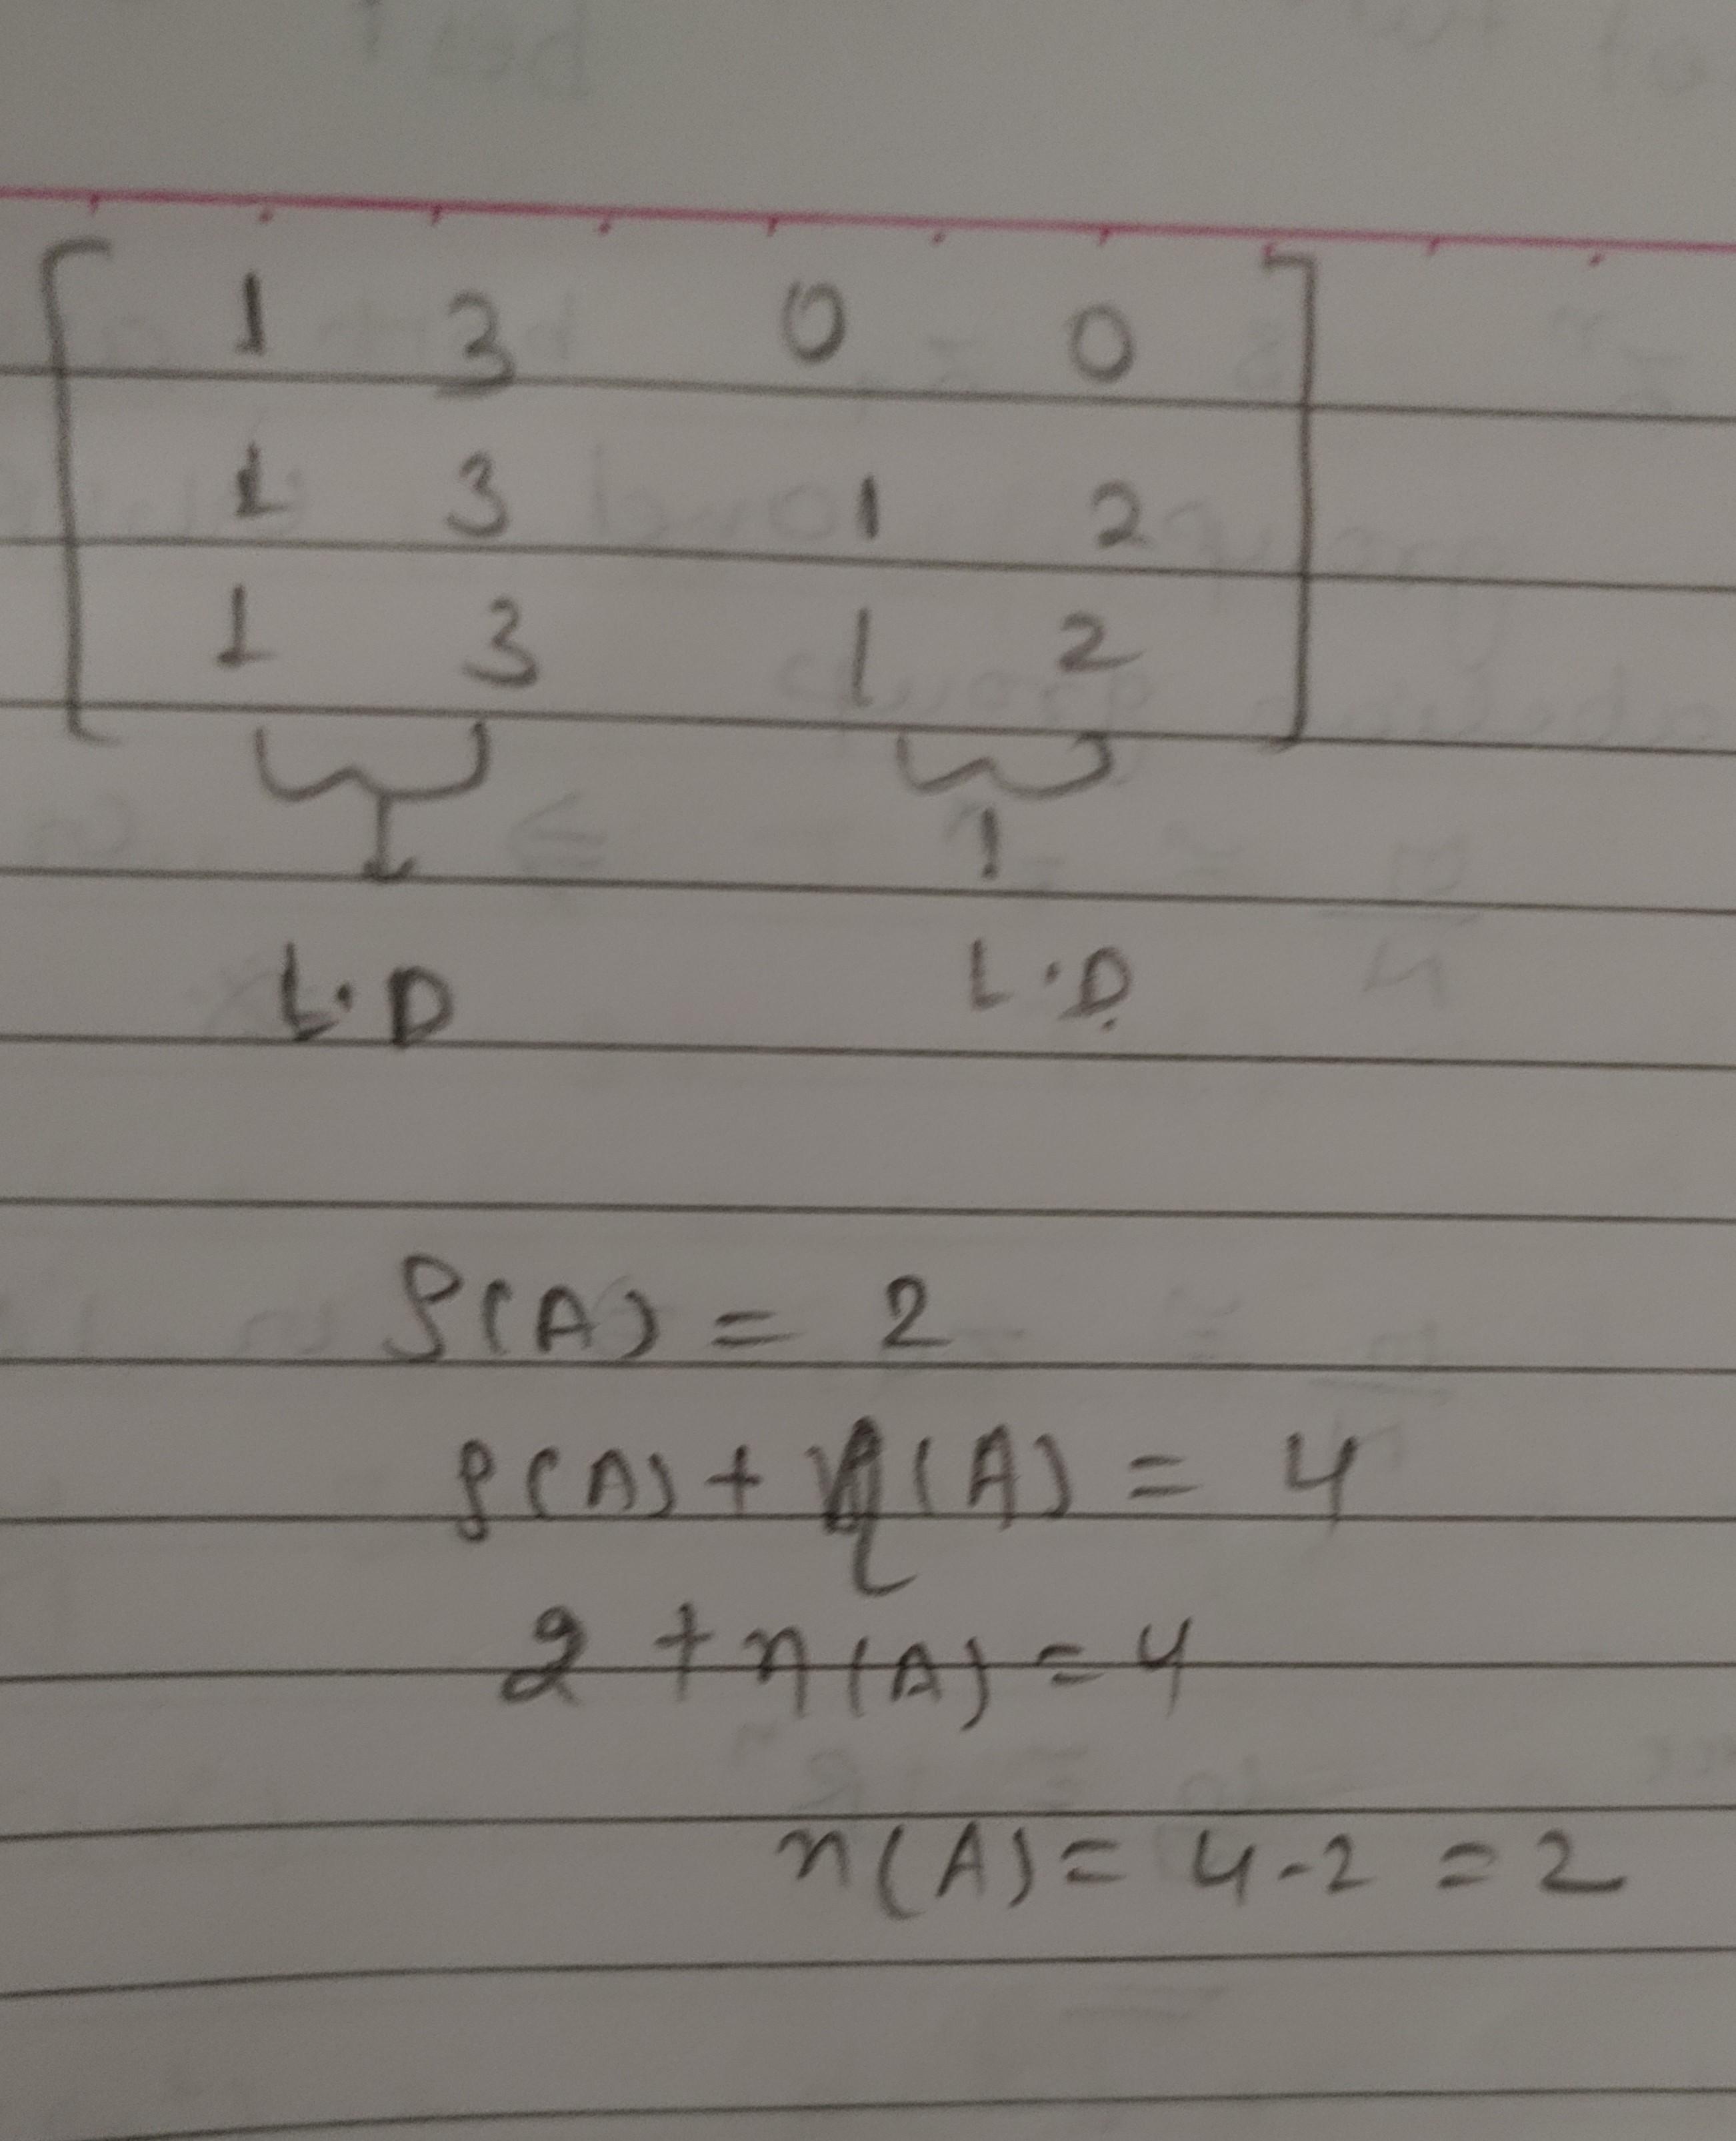 1 3 0 0
1 3 1 2
1 3 1 2
L.D L.D.
ρ(A) = 2
ρ(A) + η(A) = 4
2 + η(A) = 4
η(A) = 4 - 2 = 2